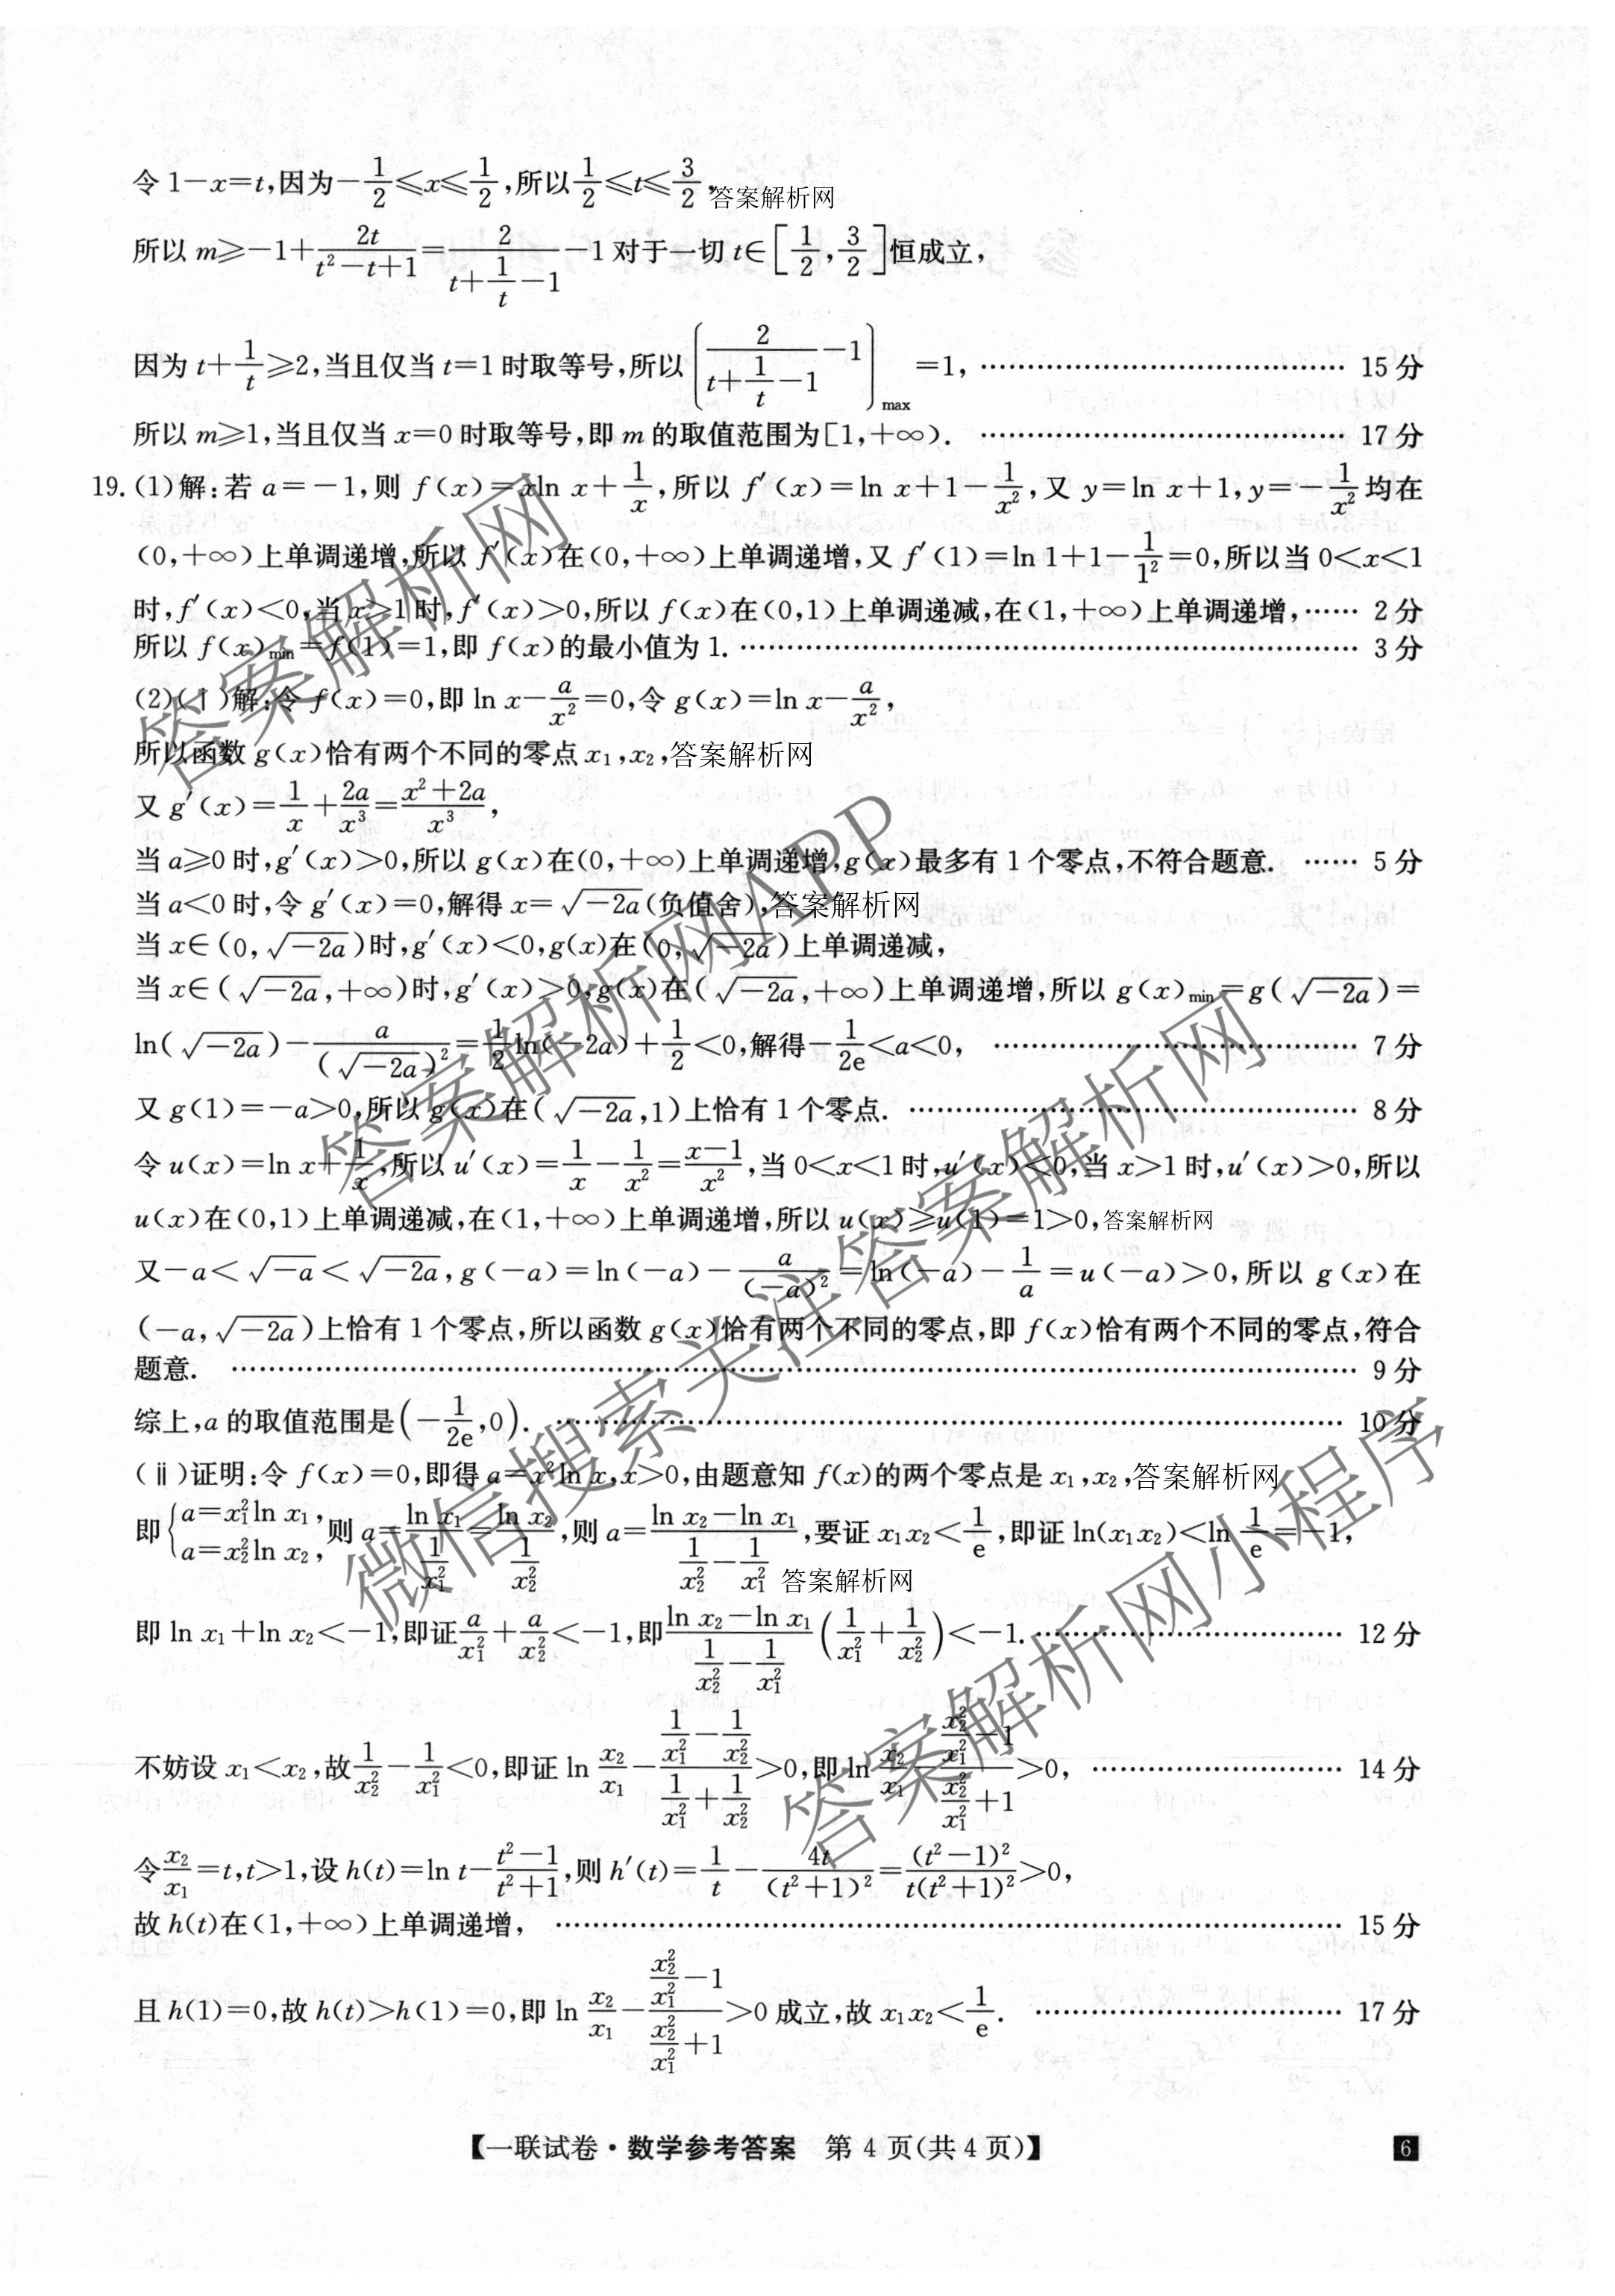 令 1−x=t,因为−1/2≤x≤1/2,所以1/2≤t≤3/2, 答案解析网
所以 m≥−1+2t/(t²−t+1)=2/(t+1/t−1)−1 对于一切 t∈[1/2,3/2]恒成立,
因为 t+1/t≥2,当且仅当 t=1 时取等号,所以(2/(t+1/t−1)−1)max=1, …… 15 分
所以 m≥1,当且仅当 x=0 时取等号,即 m 的取值范围为[1,+∞). …… 17 分
19. (1)解:若 a=−1,则 f(x)=xln x+1/x,所以 f′(x)=ln x+1−1/x²,又 y=ln x+1,y=−1/x²均在
(0,+∞)上单调递增,所以 f′(x)在(0,+∞)上单调递增,又 f′(1)=ln 1+1−1/1²=0,所以当 0<x<1
时,f′(x)<0,当 x>1 时,f′(x)>0,所以 f(x)在(0,1)上单调递减,在(1,+∞)上单调递增,…… 2 分
所以 f(x)min=f(1)=1,即 f(x)的最小值为 1. …… 3 分
(2)(ⅰ)解:令 f(x)=0,即 ln x−a/x²=0,令 g(x)=ln x−a/x²,
所以函数 g(x)恰有两个不同的零点 x₁,x₂,答案解析网
又 g′(x)=1/x+2a/x³=(x²+2a)/x³,
当 a≥0 时,g′(x)>0,所以 g(x)在(0,+∞)上单调递增,g(x)最多有 1 个零点,不符合题意. …… 5 分
当 a<0 时,令 g′(x)=0,解得 x=√(−2a)(负值舍),答案解析网
当 x∈(0,√(−2a))时,g′(x)<0,g(x)在(0,√(−2a))上单调递减,
当 x∈(√(−2a),+∞)时,g′(x)>0,g(x)在(√(−2a),+∞)上单调递增,所以 g(x)min=g(√(−2a))=
ln(√(−2a))−a/(√(−2a))²=1/2ln(−2a)+1/2<0,解得−1/2e<a<0, …… 7 分
又 g(1)=−a>0,所以 g(x)在(√(−2a),1)上恰有 1 个零点. …… 8 分
令 u(x)=ln x+1/x,所以 u′(x)=1/x−1/x²=(x−1)/x²,当 0<x<1 时,u′(x)<0,当 x>1 时,u′(x)>0,所以
u(x)在(0,1)上单调递减,在(1,+∞)上单调递增,所以 u(x)≥u(1)=1>0,答案解析网
又−a<√(−a)<√(−2a),g(−a)=ln(−a)−a/(−a)²=ln(−a)−1/a=u(−a)>0,所以 g(x)在
(−a,√(−2a))上恰有 1 个零点,所以函数 g(x)恰有两个不同的零点,即 f(x)恰有两个不同的零点,符合
题意. …… 9 分
综上,a 的取值范围是(−1/2e,0). …… 10 分
(ⅱ)证明:令 f(x)=0,即得 a=x²ln x,x>0,由题意知 f(x)的两个零点是 x₁,x₂,答案解析网
即{a=x₁²ln x₁,a=x₂²ln x₂,则 a=ln x₁/(1/x₁²)=ln x₂/(1/x₂²),则 a=(ln x₂−ln x₁)/(1/x₂²−1/x₁²),要证 x₁x₂<1/e,即证 ln(x₁x₂)<ln 1/e=−1,
答案解析网
即 ln x₁+ln x₂<−1,即证a/x₁²+a/x₂²<−1,即(ln x₂−ln x₁)/(1/x₂²−1/x₁²)(1/x₁²+1/x₂²)<−1. …… 12 分
不妨设 x₁<x₂,故1/x₂²−1/x₁²<0,即证 ln x₂/x₁−(1/x₁²−1/x₂²)/(1/x₁²+1/x₂²)>0,即 ln x₂/x₁−(x₂²/x₁²−1)/(x₂²/x₁²+1)>0, …… 14 分
令x₂/x₁=t,t>1,设 h(t)=ln t−(t²−1)/(t²+1),则 h′(t)=1/t−4t/(t²+1)²=(t²−1)²/(t(t²+1)²)>0,
故 h(t)在(1,+∞)上单调递增, …… 15 分
且 h(1)=0,故 h(t)>h(1)=0,即 ln x₂/x₁−(x₂²/x₁²−1)/(x₂²/x₁²+1)>0 成立,故 x₁x₂<1/e. …… 17 分
【一联试卷·数学参考答案 第 4 页(共 4 页)】 6
答案解析网
答案解析网APP
微信搜索关注答案解析网
答案解析网小程序